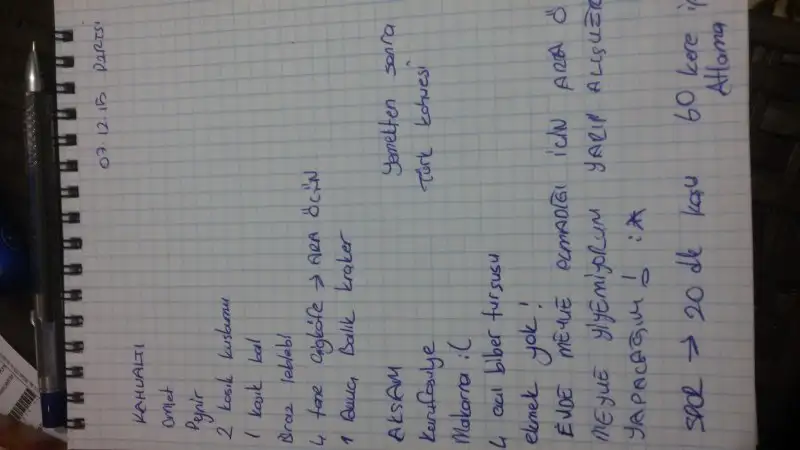 07.12.15 PZRTSİ
KAHVALTI
Omlet
Peynir
2 kaşık kuskumu
1 kaşık bal
Biraz leblebi
4 tane çiğköfte → ARA ÖĞÜN
1 avuç Balık kraker
AKŞAM
Kurufasulye
Makarna :(
4 acı biber turşusu
ekmek yok!
Yemekten sonra
Türk kahvesi
EVDE MEYVE OLMADIĞI İÇİN ARA Ö
MEYVE YİYEMİYORUM YARIN ALIŞVER
YAPACAĞIM! :*
SPOR → 20 dk koşu 60 kere ip
Atlama